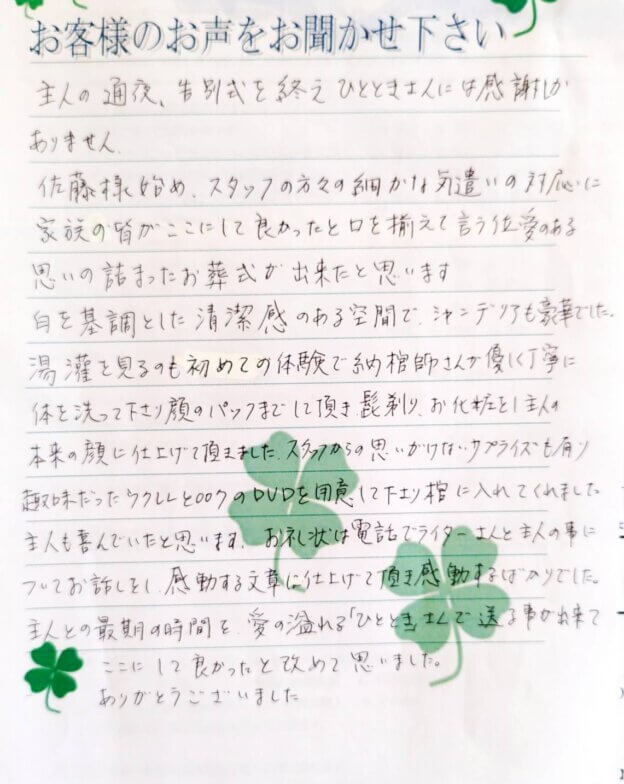 お客様のお声をお聞かせ下さい
主人の通夜、告別式を終えひとときさんには感謝しか
ありません。
佐藤様始め、スタッフの方々の細かな気遣いの対応に
家族の皆がここにして良かったと口を揃えて言う位愛のある
思いの詰まったお葬式が出来たと思います
白を基調とした清潔感のある空間で、シャンデリアも豪華でした。
湯灌を見るのも初めての体験で納棺師さんが優しく丁寧に
体を洗って下さり顔のパックまでして頂き髭剃り、お化粧をし主人の
本来の顔に仕上げて頂きました。スタッフからの思いがけないサプライズも有り
趣味だったウクレレと○○クのDVDを用意して下さり棺に入れてくれました
主人も喜んでいたと思います。お礼状は電話でライターさんと主人の事に
ついてお話しをし、感動する文章に仕上げて頂き感動するばかりでした。
主人との最期の時間を、愛の溢れる「ひととき」さんで送る事が出来て
ここにして良かったと改めて思いました。
ありがとうございました